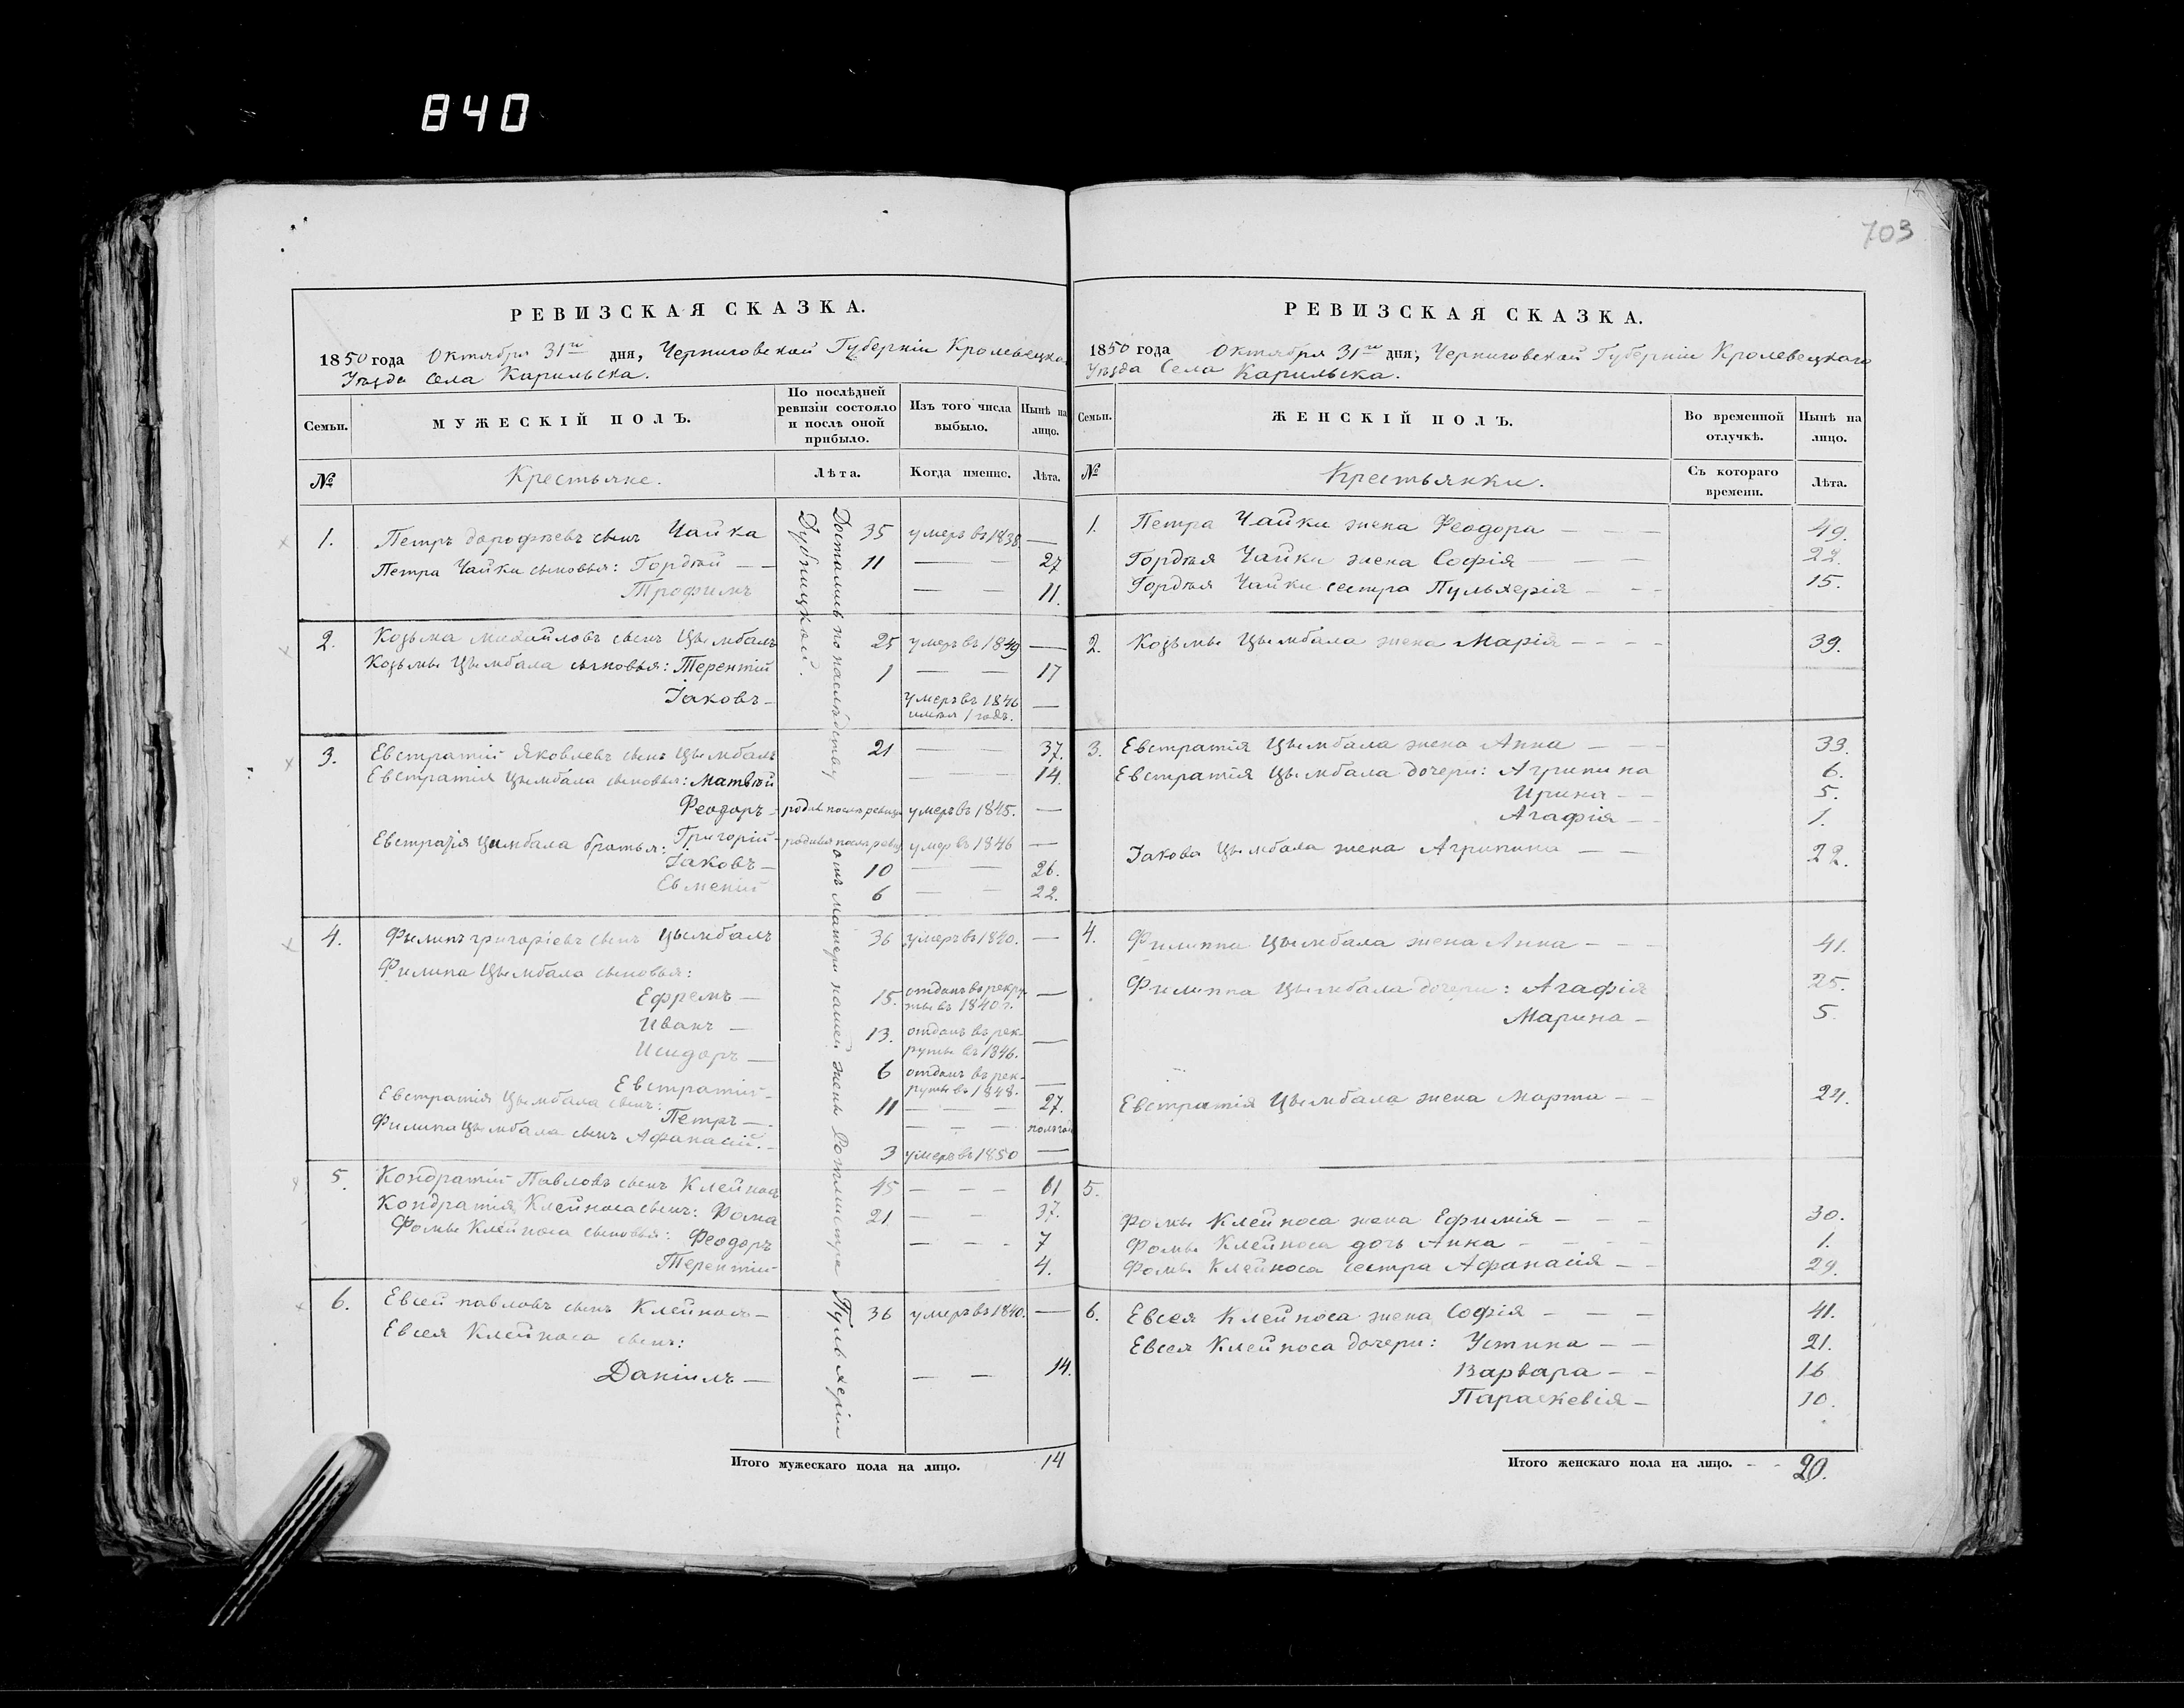 840
703
РЕВИЗСКАЯ СКАЗКА.
1850 года Октября 31го дня, Черниговской Губерніи Кролевецкаго
Уѣзда Села Карильска.
Семьи.
МУЖЕСКІЙ ПОЛЪ.
По послѣдней ревизіи состояло и послѣ оной прибыло.
Изъ того числа выбыло.
Нынѣ на лицо.
№
Крестьяне.
Лѣта.
Когда именно.
Лѣта.
Досталис по наслѣдству отъ матери нашей жены Ротмистра Пульхеріи
Дубницкой.
1. Петръ дорофѣевъ сынъ Чайка 35 умеръ въ 1838 —
Петра Чайки сыновья: Гордѣй — — 11 — — 27
Трофимъ — — 11.
2. Козьма михайловъ сынъ Цымбалъ 25 умеръ въ 1849 —
Козьмы Цымбала сыновья: Терентій 1 — — 17
Іаковъ — умеръ въ 1846 —
имѣя 1 годъ.
3. Евстратій Яковлевъ сынъ Цымбалъ 21 — — 37.
Евстратія Цымбала сыновья: Матвѣй — — 14.
Феодоръ — родив после ревизи умеръ въ 1845. —
Григорій — родився после ревиз умер въ 1846 —
Евстратія Цымбала братья:
Іаковъ — 10 — — 26.
Евменій 6 — — 22.
4. Филипъ григоріевъ сынъ Цымбалъ 36 умеръ въ 1840. —
Филипа Цымбала сыновья:
Ефремъ — 15. отданъ въ рекру- —
ты въ 1840 г.
Иванъ — 13. отданъ въ рек- —
руты въ 1846.
Исидоръ — 6 отданъ въ рек- —
руты въ 1848.
Евстратій — 11 — — — 27.
Евстратія Цымбала сынъ: Петръ — — — — полгод
Филипа Цымбала сынъ Афанасій. — 3 умеръ въ 1850 —
5. Кондратій Павловъ сынъ Клейносъ 45 — — — 61
Кондратія Клейноса сынъ: Фома 21 — — 37.
Фомы Клейноса сыновья: Феодоръ — — - 7
Терентій 4.
6. Евсей павловъ сынъ Клейносъ — 36 умеръ въ 1840. —
Евсея Клейноса сынъ:
Даніилъ — — — 14.
Итого мужескаго пола на лицо. 14
РЕВИЗСКАЯ СКАЗКА.
1850 года Октября 31го дня, Черниговской Губерніи Кролевецкаго
Уѣзда Села Карильска.
Семьи.
ЖЕНСКІЙ ПОЛЪ.
Во временной отлучкѣ.
Нынѣ на лицо.
№
Крестьянки.
Съ котораго времени.
Лѣта.
1. Петра Чайки жена Феодора — — — 49.
Гордѣя Чайки жена Софія — — — 22.
Гордѣя Чайки сестра Пульхерія — - - 15.
2. Козьмы Цымбала жена Марія — - - - 39.
3. Евстратія Цымбала жена Анна — - - 33.
Евстратія Цымбала дочери: Агрипина 6.
Ирина — - 5.
Агафія — - 1.
Іакова Цымбала жена Агрипина — — 22.
4. Филиппа Цымбала жена Анна — - - 41.
Филиппа Цымбала дочери: Агафія 25.
Марина — 5.
Евстратія Цымбала жена Марта — - 24.
5.
Фомы Клейноса жена Ефимія — - - 30.
Фомы Клейноса дочь Анна - - - 1.
Фомы Клейноса сестра Афанасія — - 29.
6. Евсея Клейноса жена Софія — — — 41.
Евсея Клейноса дочери: Устина — — 21.
Варвара — - 16
Параскевія — 10.
Итого женскаго пола на лицо. - - 20.